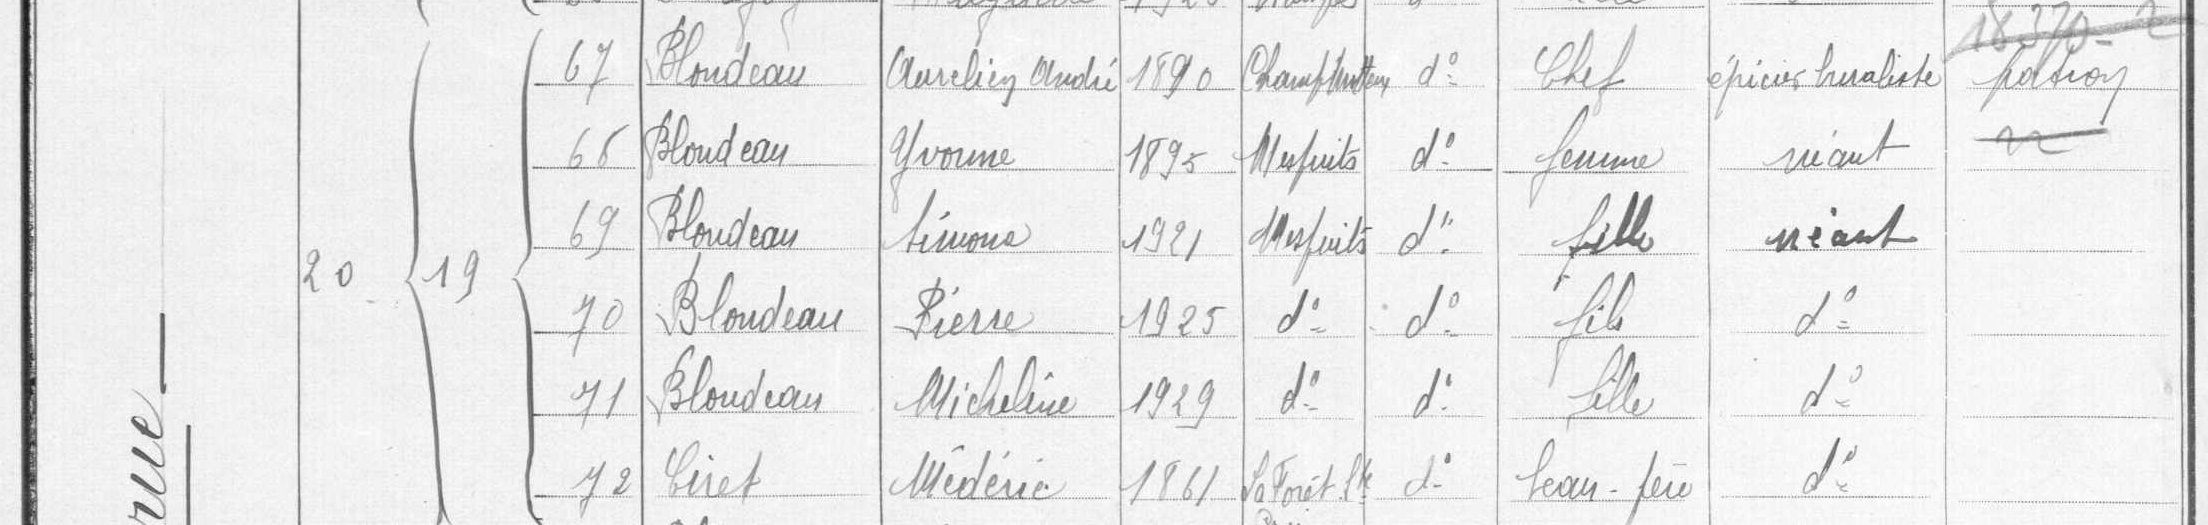 18370-2
67 Blondeau Aurélien André 1890 Champmotteux d° Chef épicier buraliste patron
68 Blondeau Yvonne 1895 Mespuits d° femme néant
69 Blondeau Simone 1921 Mespuits d° fille néant
20 19 70 Blondeau Pierre 1925 d° d° fils d°
71 Blondeau Micheline 1929 d° d° fille d°
72 Ciret Médéric 1861 La Forêt Ste d° beau-père d°
rue